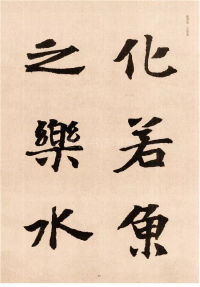 化若魚
之樂水